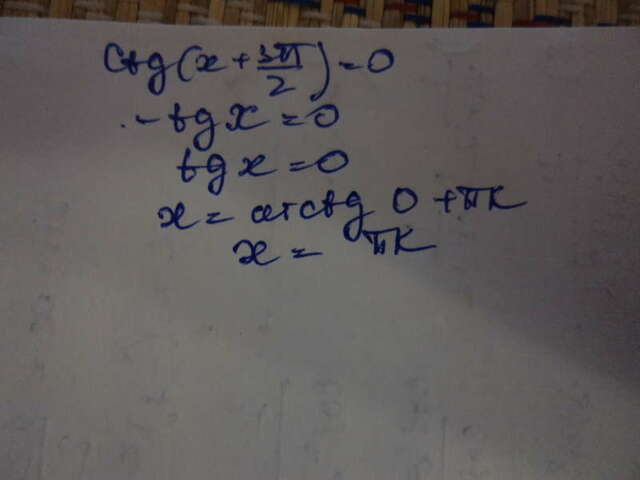 ctg(x + 3π/2) = 0
- tg x = 0
tg x = 0
x = arcctg 0 + πk
x = πk